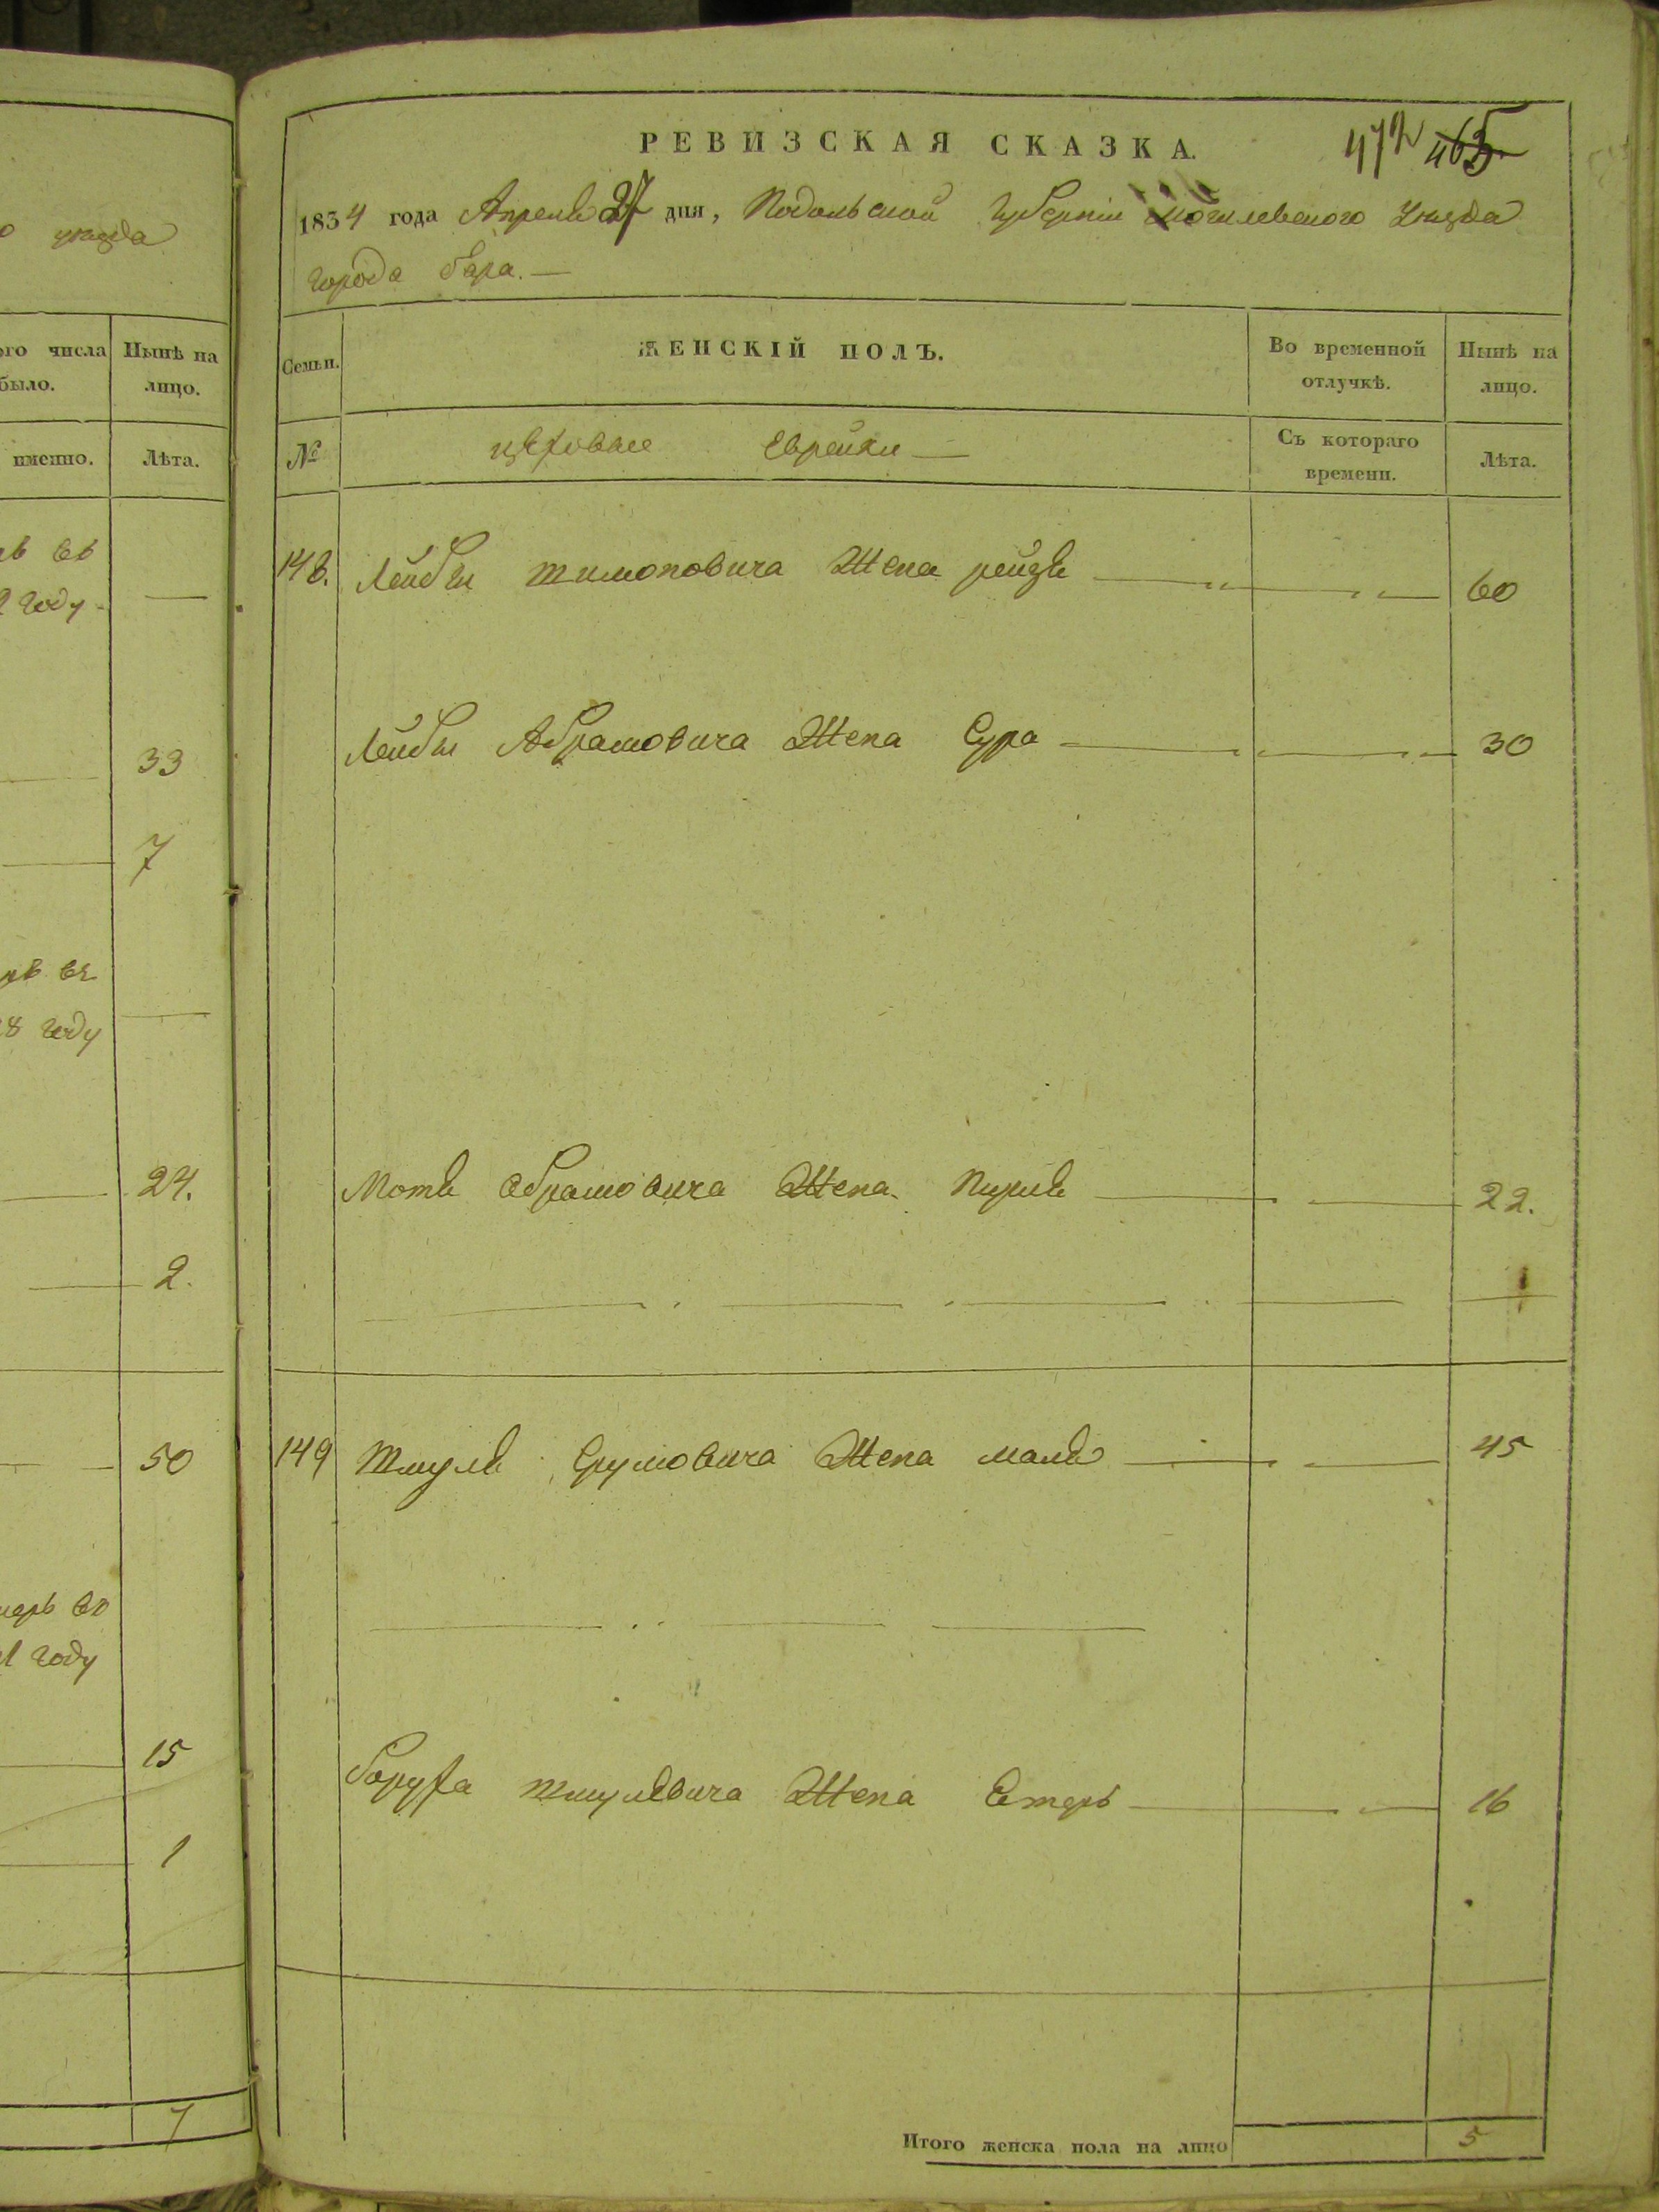 о уѣзда
ого числа
было.
Нынѣ на
лицо.
именно.
Лѣта.
въ
году
33
7
8 году
24.
2.
50
1 году
15
1
7
РЕВИЗСКАЯ СКАЗКА.
472 465
1834 года Апреля 27 дня, Подольской Губерніи Могилевского Уѣзда
города бара.
Семьи.
ЖЕНСКІЙ ПОЛЪ.
Во временной
отлучкѣ.
Нынѣ на
лицо.
№
цѣховые Еврейки
Съ котораго
времени.
Лѣта.
148. Лейбы шимоновича Жена рейзя 60
Лейбы Абрамовича Жена Сура 30
Мотя абрамовича Жена Пирля 22.
149 Шмуля Срумовича Жена маля 45
боруха шмулѣвича Жена Етерь 16
Итого женска пола на лицо 5